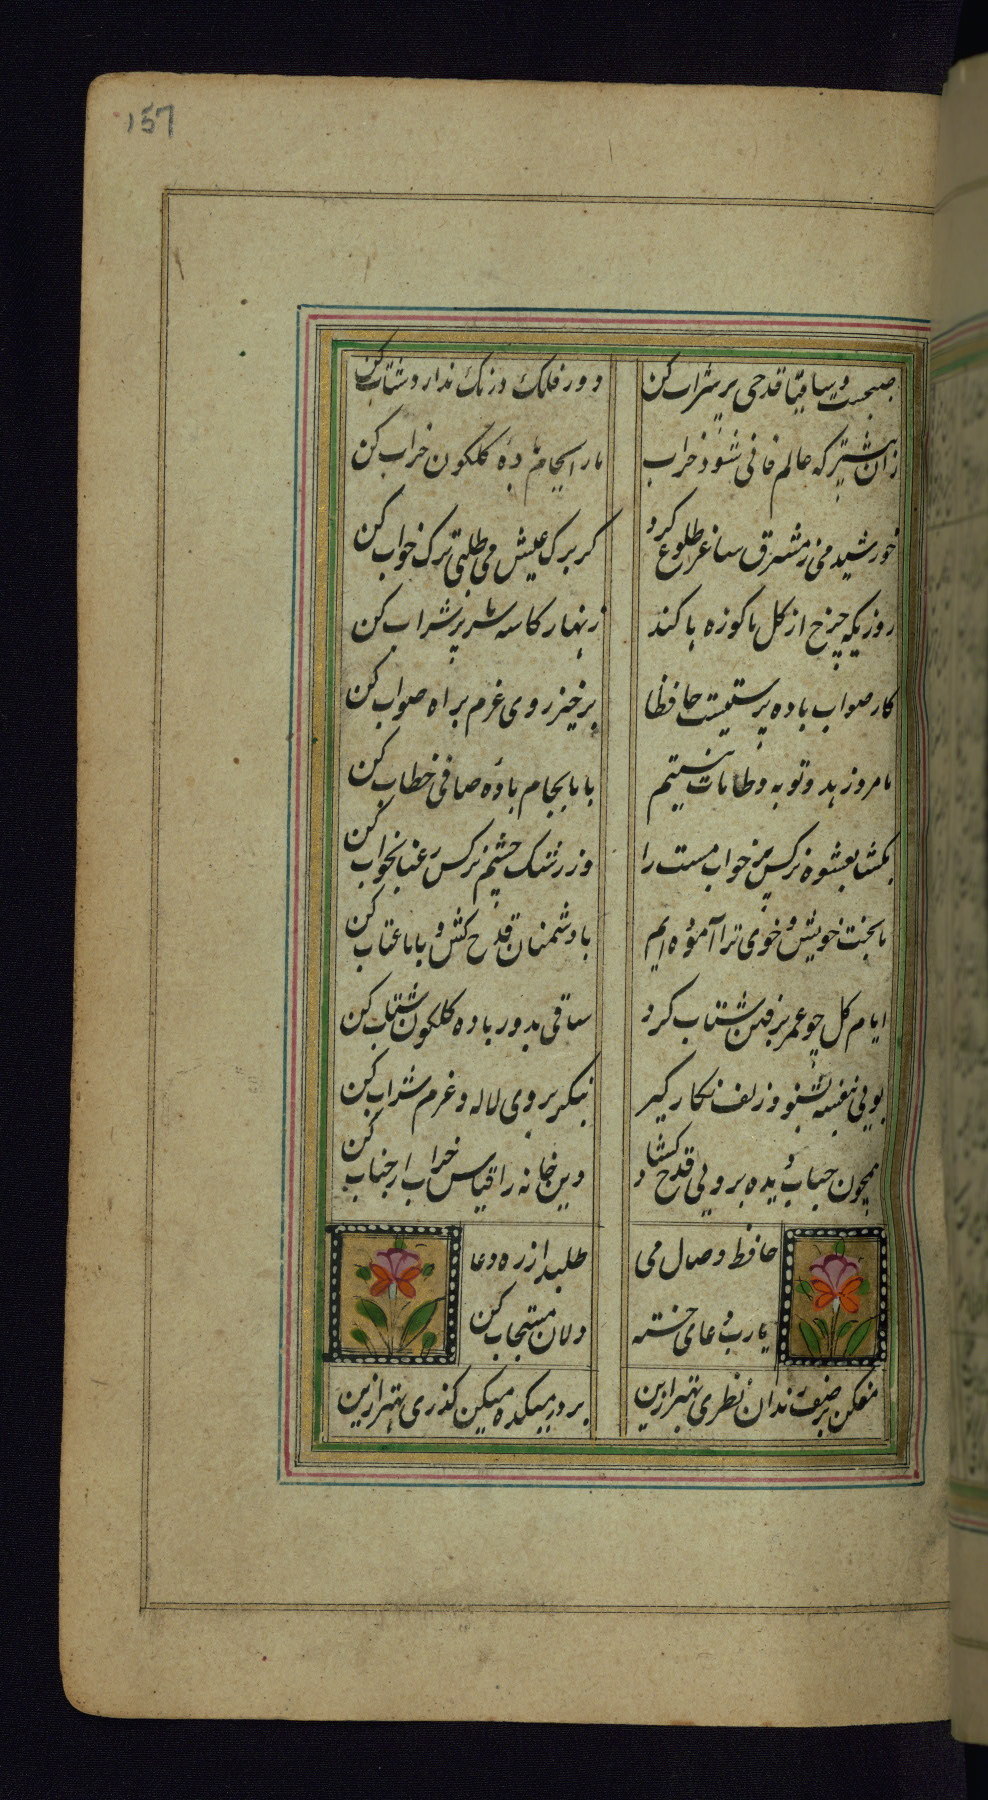 157
صبحست و ساقیا قدحی پر شراب کن
دور فلک درنک ندارد شتاب کن
زان پیشتر که عالم فانی شود خراب
مارا بجام بادهٔ کلکون خراب کن
خورشید می ز مشرق ساغر طلوع کرد
کر برک عیش می طلبی ترک خواب کن
روزیکه چرخ از کل ما کوزه ها کند
زنهار کاسه سر پر شراب کن
کار صواب باده پرستیست حافظا
برخیز روی عزم براه صواب کن
ما مرد زهد و توبه و طامات نیستیم
با ما بجام بادهٔ صافی خطاب کن
بکشا بعشوه نرکس پر خواب مست را
وز رشک چشم نرکس رعنا بخواب کن
با بخت خویش و خوی ترا آزموده ایم
با دشمنان قدح کش و با ما عتاب کن
ایام کل چو عمر برفتن شتاب کرد
ساقی بدور باده کلکون شتاب کن
بوی بنفشه بشنو و زلف نکار کیر
بنکر بروی لاله و عزم شراب کن
همچون حباب دیده بروی قدح کشا
وین خانه را قیاس خراب از حباب کن
حافظ وصال می
طلبد از ره دعا
یارب دعای خسته
دلان مستجاب کن
مفکن بر صف رندان نظری بهتر ازین
بر در میکده میکن کذری بهتر ازین